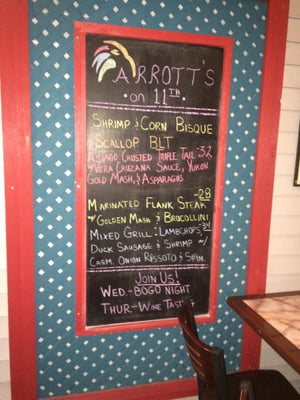 PARROTT'S
• on 11TH •
SHRIMP & CORN BISQUE
SCALLOP BLT
ASIAGO CRUSTED TRIPLE TAIL -32
w/VERA CRUZANA SAUCE, YUKON
GOLD MASH, & ASPARAGUS
-28
MARINATED FLANK STEAK
w/GOLDEN MASH & BROCOLLINI
MIXED GRILL: LAMBCHOPS,
DUCK SAUSAGE & SHRIMP w/
CARM. ONION RISSOTO & SPIN.
JOIN US!
WED.-BOGO NIGHT
THUR-WINE